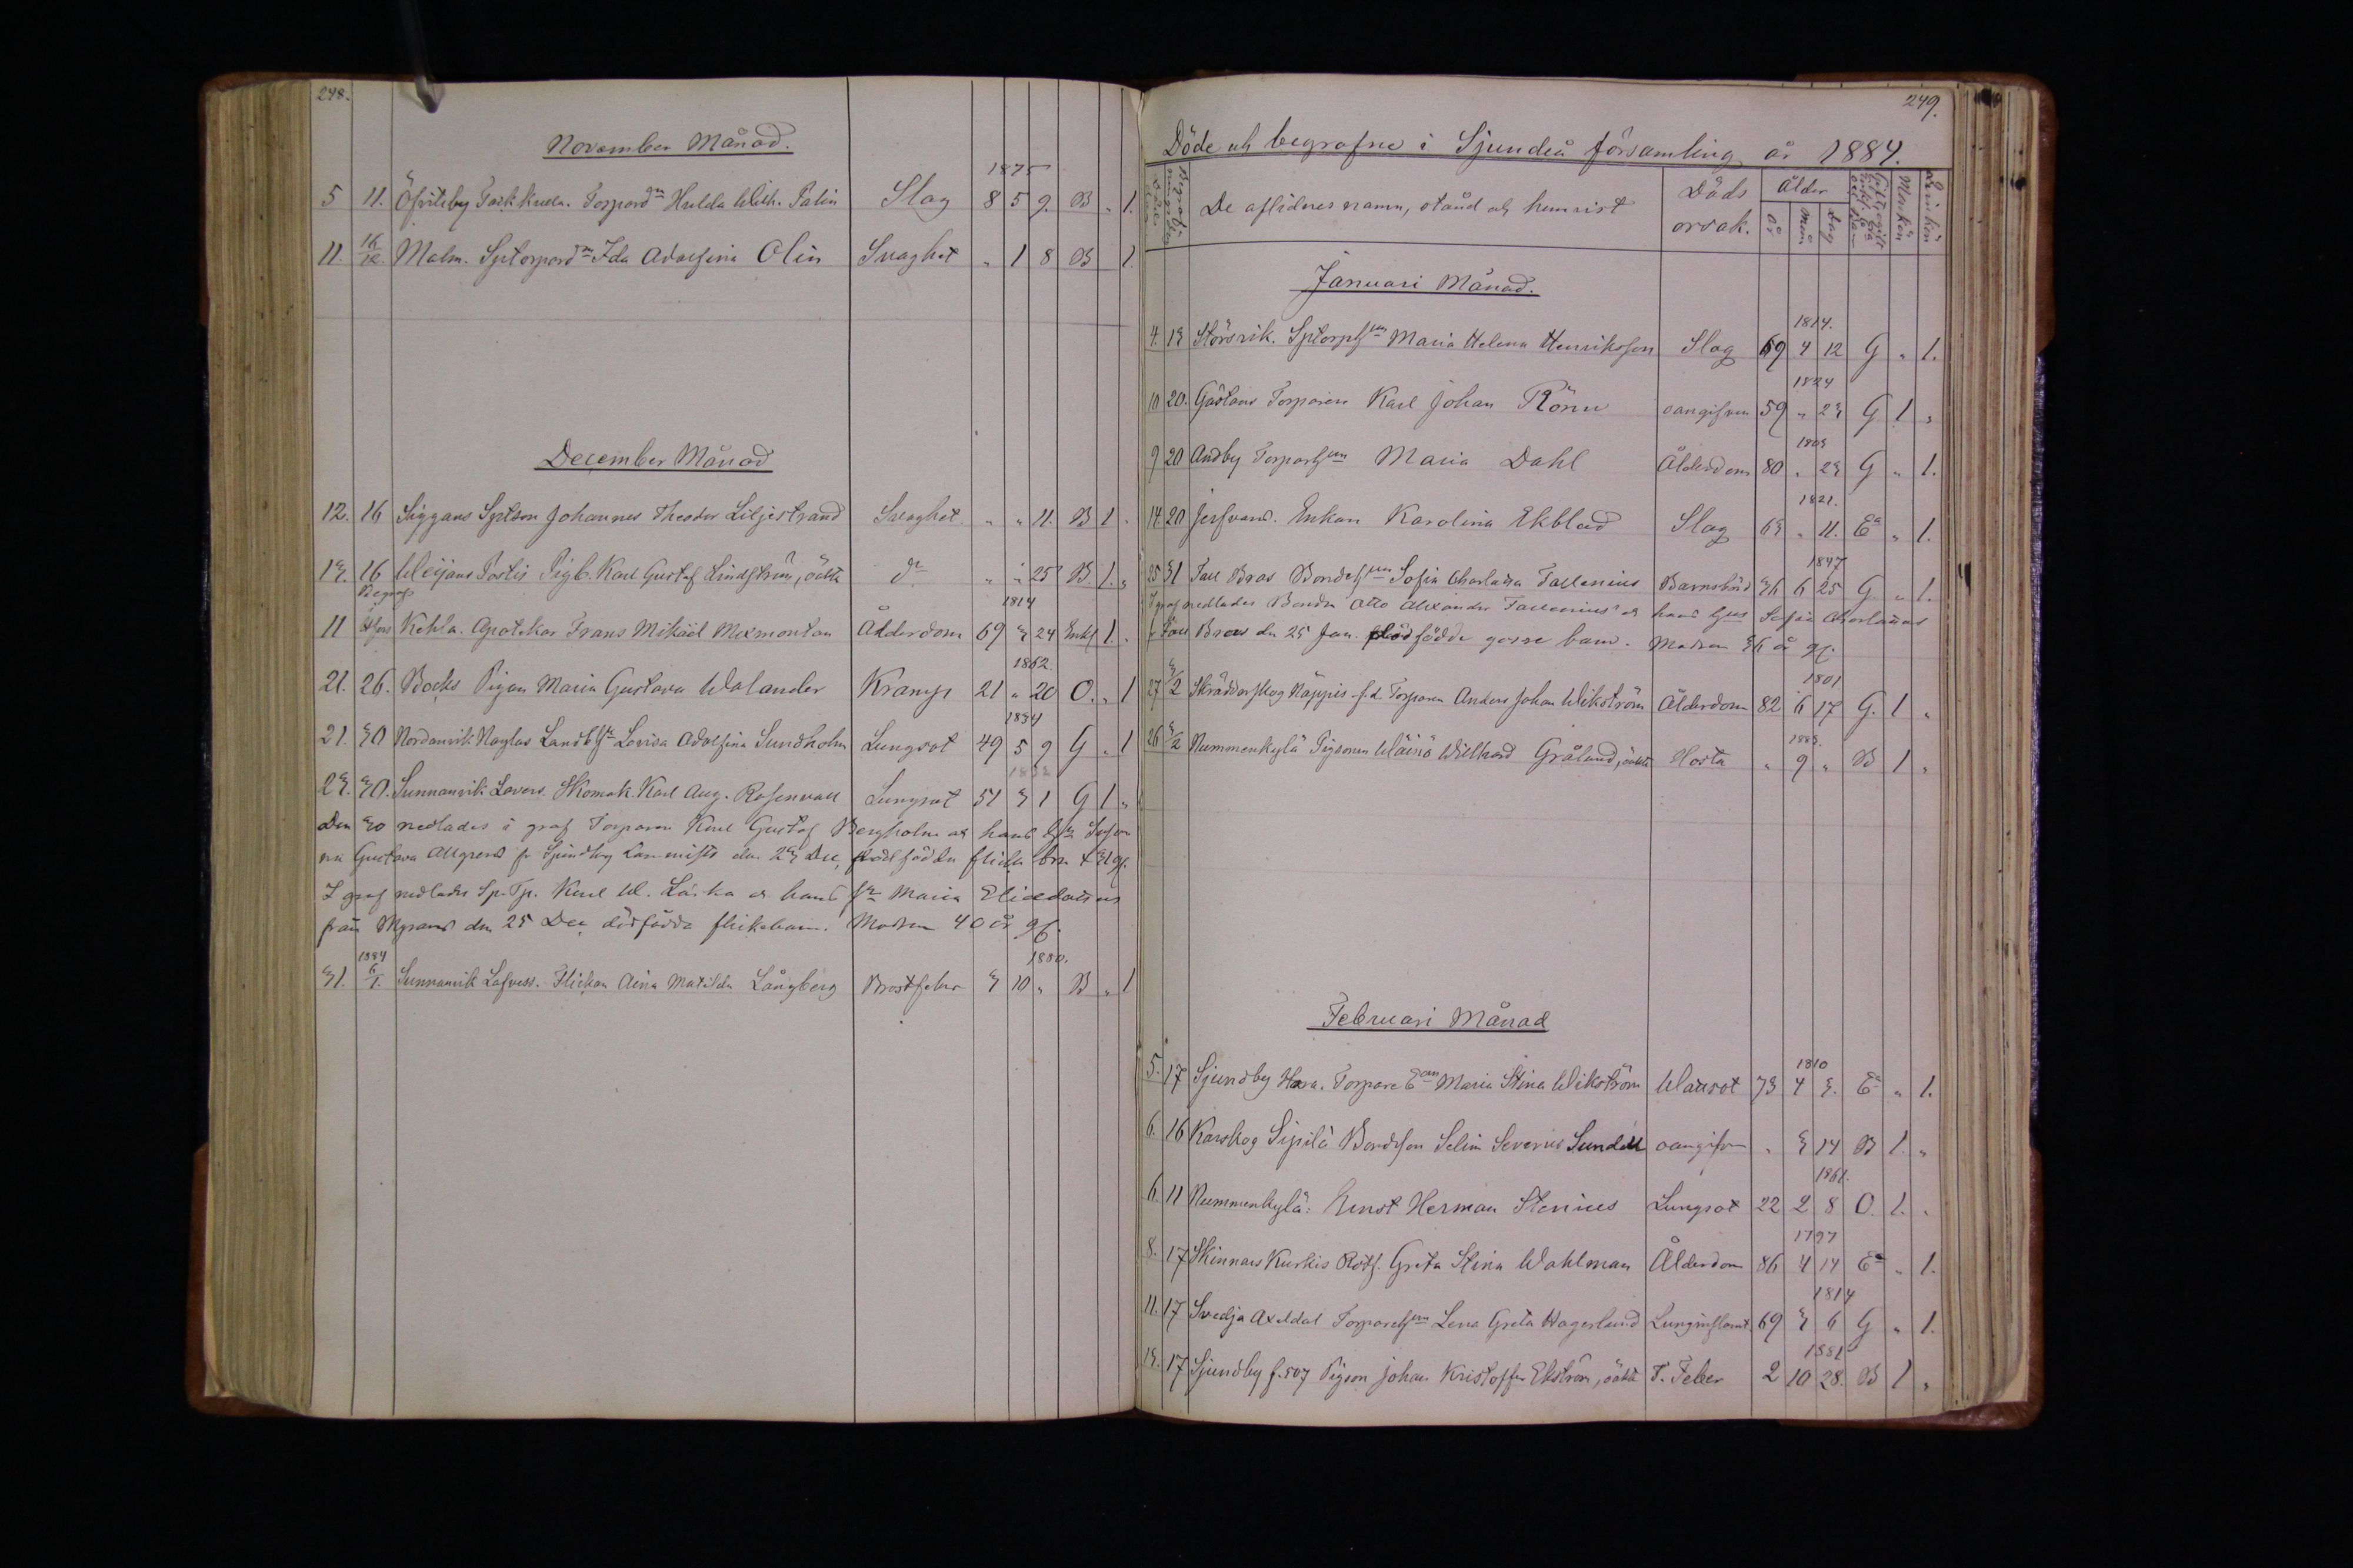 248.
November Månad.
1875
5 11. Öfvitsby Torpard:r Hulda Wilh. Palin Slag 8 5 9. B " 1.
11. 16/12. Malm. Sptorpard:r Ida Adolfina Olin Svaghet " 1 8 B 1.
December Månad
12. 16 Siggans Sptson Johannes Theodor Liljestrand Svaghet " " 11. B 1 "
13. 16 Weijans Postis Pigb. Karl Gustaf Lindström, oäkta d:o " " 25 B 1. "
Begrafs 1814
11 Hfors Kehla. Apotekar Frans Mikäel Mexmontan Ålderdom 69 3 24 Enkl 1 "
1862.
21. 26. Bocks Pigan Maria Gustava Walander Kramp 21 " 20 O. " 1
1834
21. 30 Nordanvik Landb Lovisa Adolfina Sundholm Lungsot 49 5 9 G " 1
1832
23. 30. Sunnanvik Lovers. Skomak. Karl Aug. Rosenvall Lungsot 51 3 1 G 1 "
Den 30 nedlades i graf Torparen Karl Gustaf Bergholm och hans
na Gustava Allgrens fr Sjundby den 23 Dec, dödfödda flicka
I graf nedlades Sp. Tp. Karl W. Laika och hans Maria
från Myrans den 25 Dec dödfödda flickebarn. Modren 40 år gl.
1884 1880.
31. 6/1. Sunnanvik Lofvers. Flickan Aina Matilda Långberg Brostfeber 3 10 " B " 1
249.
Döde och begrafne i Sjundeå församling år 1884.
De aflidnes namn, stånd och hemvist Döds orsak. Ålder År Mån Dag Mankön Qvinkön
Januari Månad.
1814.
4. 13 Störsvik. Maria Helena Henriksson Slag 69 4 12 G " 1.
1824
10 20. Gästans Torparen Karl Johan Rönn oangifven 59 " 23 G 1 "
1803
9 20 Andby Torparh:un Maria Dahl Ålderdom 80 " 23 G " 1.
1821.
14. 20 Jerfvans. Enkan Karolina Ekblad Slag 63 " 11. E:a " 1.
1847
25 31 Tall Bras Bondeh:un Sofia Charlotta Tallenius Barnsbörd 36 6 25 G " 1.
I graf nedlades Bonden Otto Alexander Tallenius' och hans hus Sofia Charlottas
fr Tall Bras den 25 Jan. dödfödda gosse barn. Modren 36 år gl.
1801
27 3/2 Skräddarskog Näppis f.d. Torparen Anders Johan Wikström Ålderdom 82 6 17 G. 1 "
1883.
26 3/2 Nummenkylä Pigsonen Wäinö Willehard Grålund, oäkta Hosta " 9 " B 1 "
Februari Månad
1810
5. 17 Sjundby Torpare E:an Maria Stina Wikström Wattsot 73 4 3. E:a " 1.
6. 16 Karskog Sipilä Bondeson Selim Severus Sundell oangifven " 3 14 B 1. "
1861.
6. 11 Nummenkylä: Ernst Herman Stenius Lungsot 22 2 8 O. 1. "
1797
8. 17 Skinnars Kurkis Roth. Greta Stina Wahlman Ålderdom 86 4 14 E:a " 1.
1814
11. 17 Svedja Axeldal Torpareh:un Lena Greta Hagerlund Lunginflamt. 69 3 6 G " 1.
1881
13. 17 Sjundby f.507 Pigson Johan Kristoffer Ekström, oäkta T. Feber 2 10 28. B 1 "